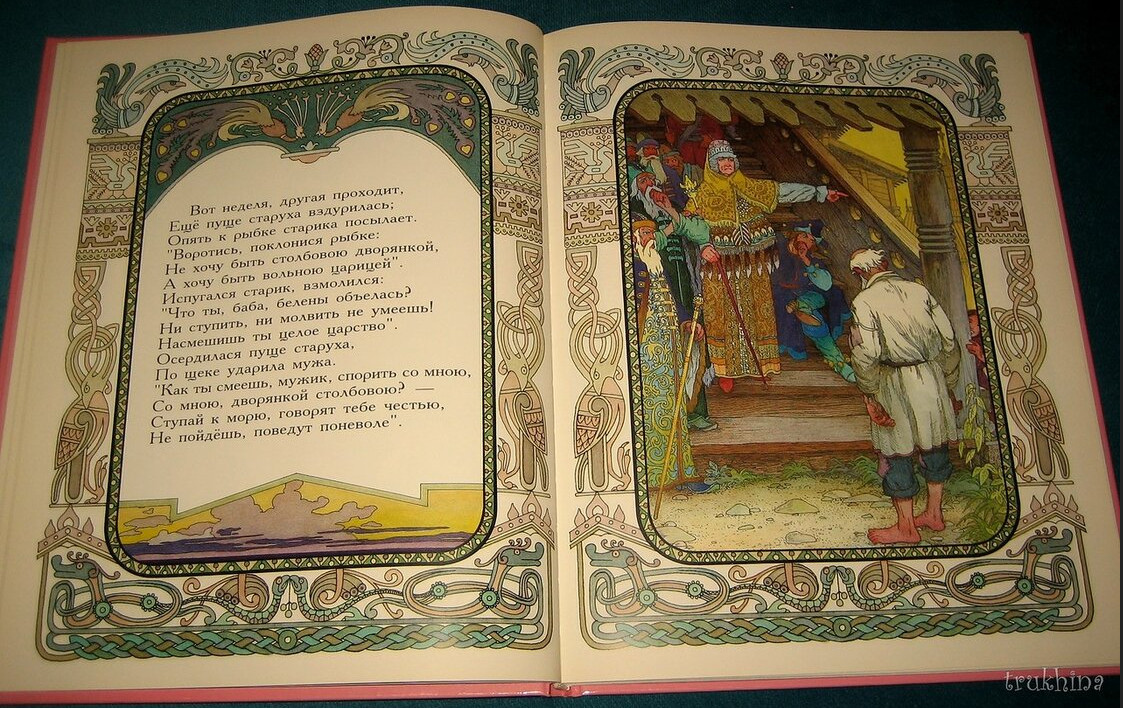 Вот неделя, другая проходит,
Ещё пуще старуха вздурилась;
Опять к рыбке старика посылает.
"Воротись, поклонися рыбке:
Не хочу быть столбовою дворянкой,
А хочу быть вольною царицей".
Испугался старик, взмолился:
"Что ты, баба, белены объелась?
Ни ступить, ни молвить не умеешь!
Насмешишь ты целое царство".
Осердилася пуще старуха,
По щеке ударила мужа.
"Как ты смеешь, мужик, спорить со мною,
Со мною, дворянкой столбовою? —
Ступай к морю, говорят тебе честью,
Не пойдёшь, поведут поневоле".
trukhina